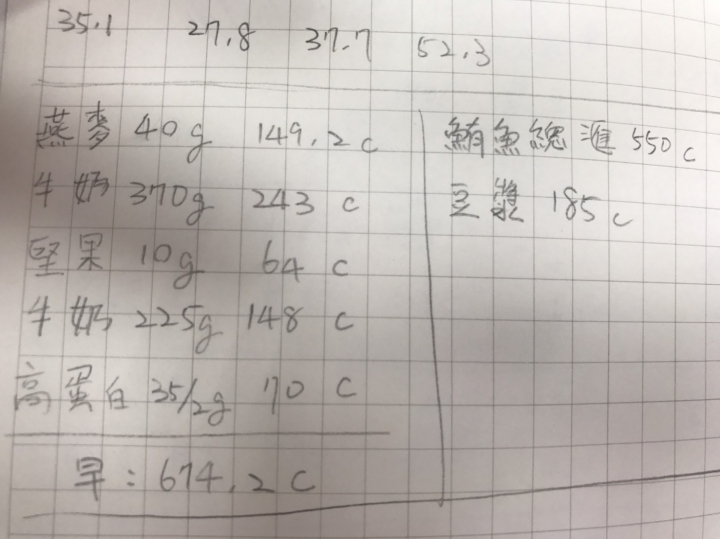 35.1 27.8 37.7 52.3
燕麥 40g 149.2c
牛奶 370g 243 c
堅果 10g 64 c
牛奶 225g 148 c
高蛋白 35/2g 70 c
早：674.2 c
鮪魚總滙 550 c
豆漿 185 c